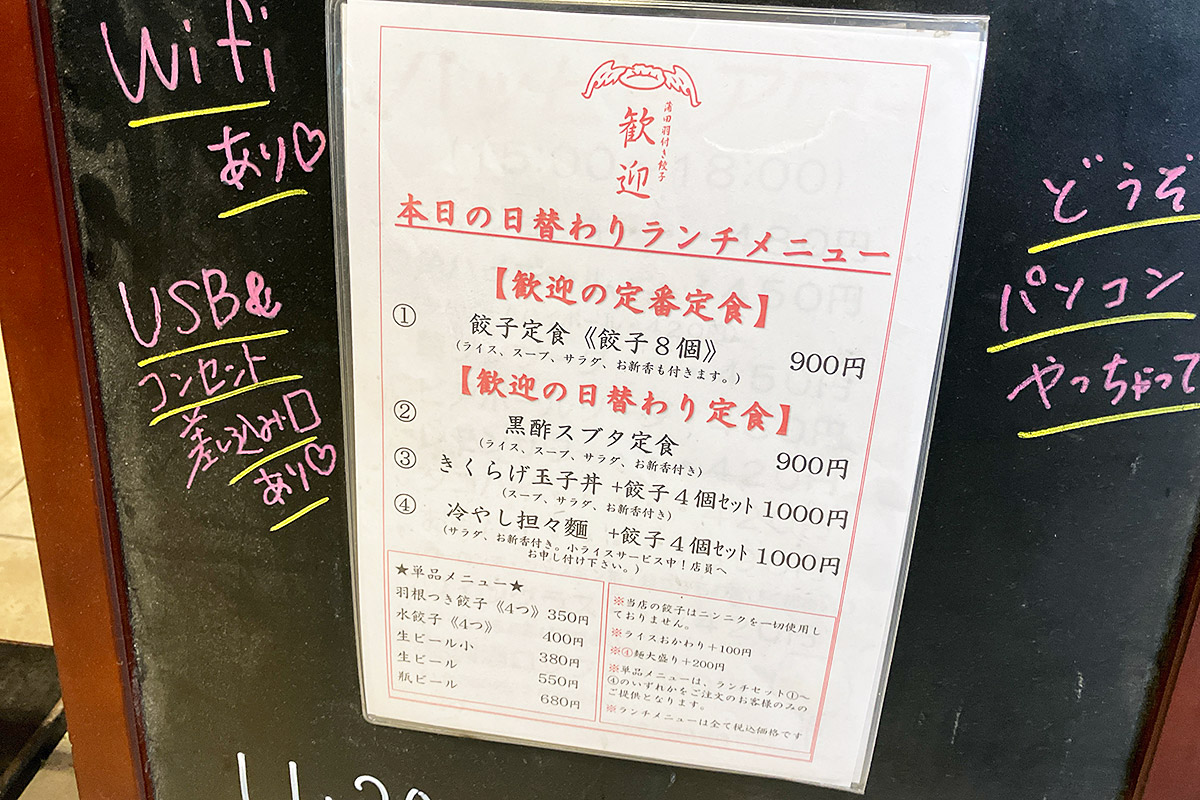 Wifi
あり♡
USB&
コンセント
差し込み口
あり♡
蒲田羽付き餃子
歓迎
本日の日替わりランチメニュー
【歓迎の定番定食】
① 餃子定食《餃子8個》 900円
(ライス、スープ、サラダ、お新香も付きます。)
【歓迎の日替わり定食】
② 黒酢スブタ定食 900円
(ライス、スープ、サラダ、お新香付き)
③ きくらげ玉子丼 +餃子4個セット 1000円
(スープ、サラダ、お新香付き)
④ 冷やし担々麺 +餃子4個セット 1000円
(サラダ、お新香付き。小ライスサービス中！店員へ
お申し付け下さい。)
★単品メニュー★
羽根つき餃子《4つ》350円
水餃子《4つ》 400円
生ビール小 380円
生ビール 550円
瓶ビール 680円
※当店の餃子はニンニクを一切使用し
ておりません。
※ライスおかわり+100円
※④麺大盛り+200円
※単品メニューは、ランチセット①～
④のいずれかをご注文のお客様のみの
ご提供となります。
※ランチメニューは全て税込価格です
どうぞ
パソコン
やっちゃって